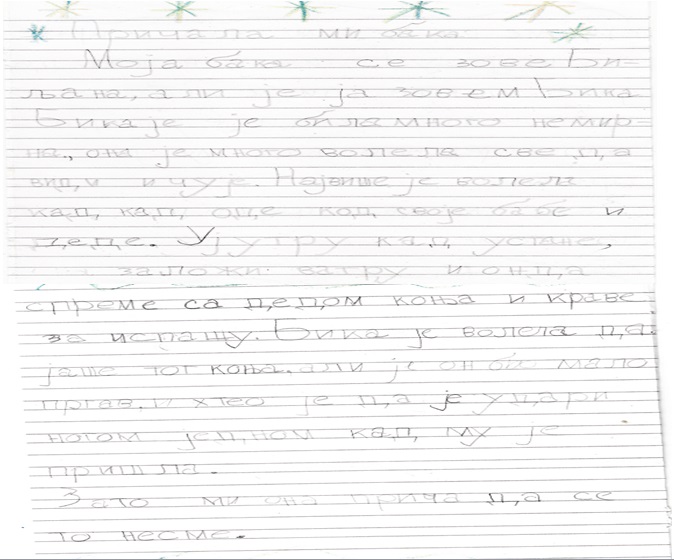 Причала ми бака
Моја бака се зове Би-
љана, али је ја зовем Бика
Бика је је била много немир-
на, она је много волела све да
види и чује. Највише је волела
кад, кад оде код своје бабе и
деде. Ујутру кад устане,
заложи ватру и онда
спреме са дедом коња и краве
за испашу. Бика је волела да
јаше тог коња. али је он био мало
пргав. и хтео је да је удари
ногом једном кад му је
пришла.
Зато ми она прича да се
то несме.